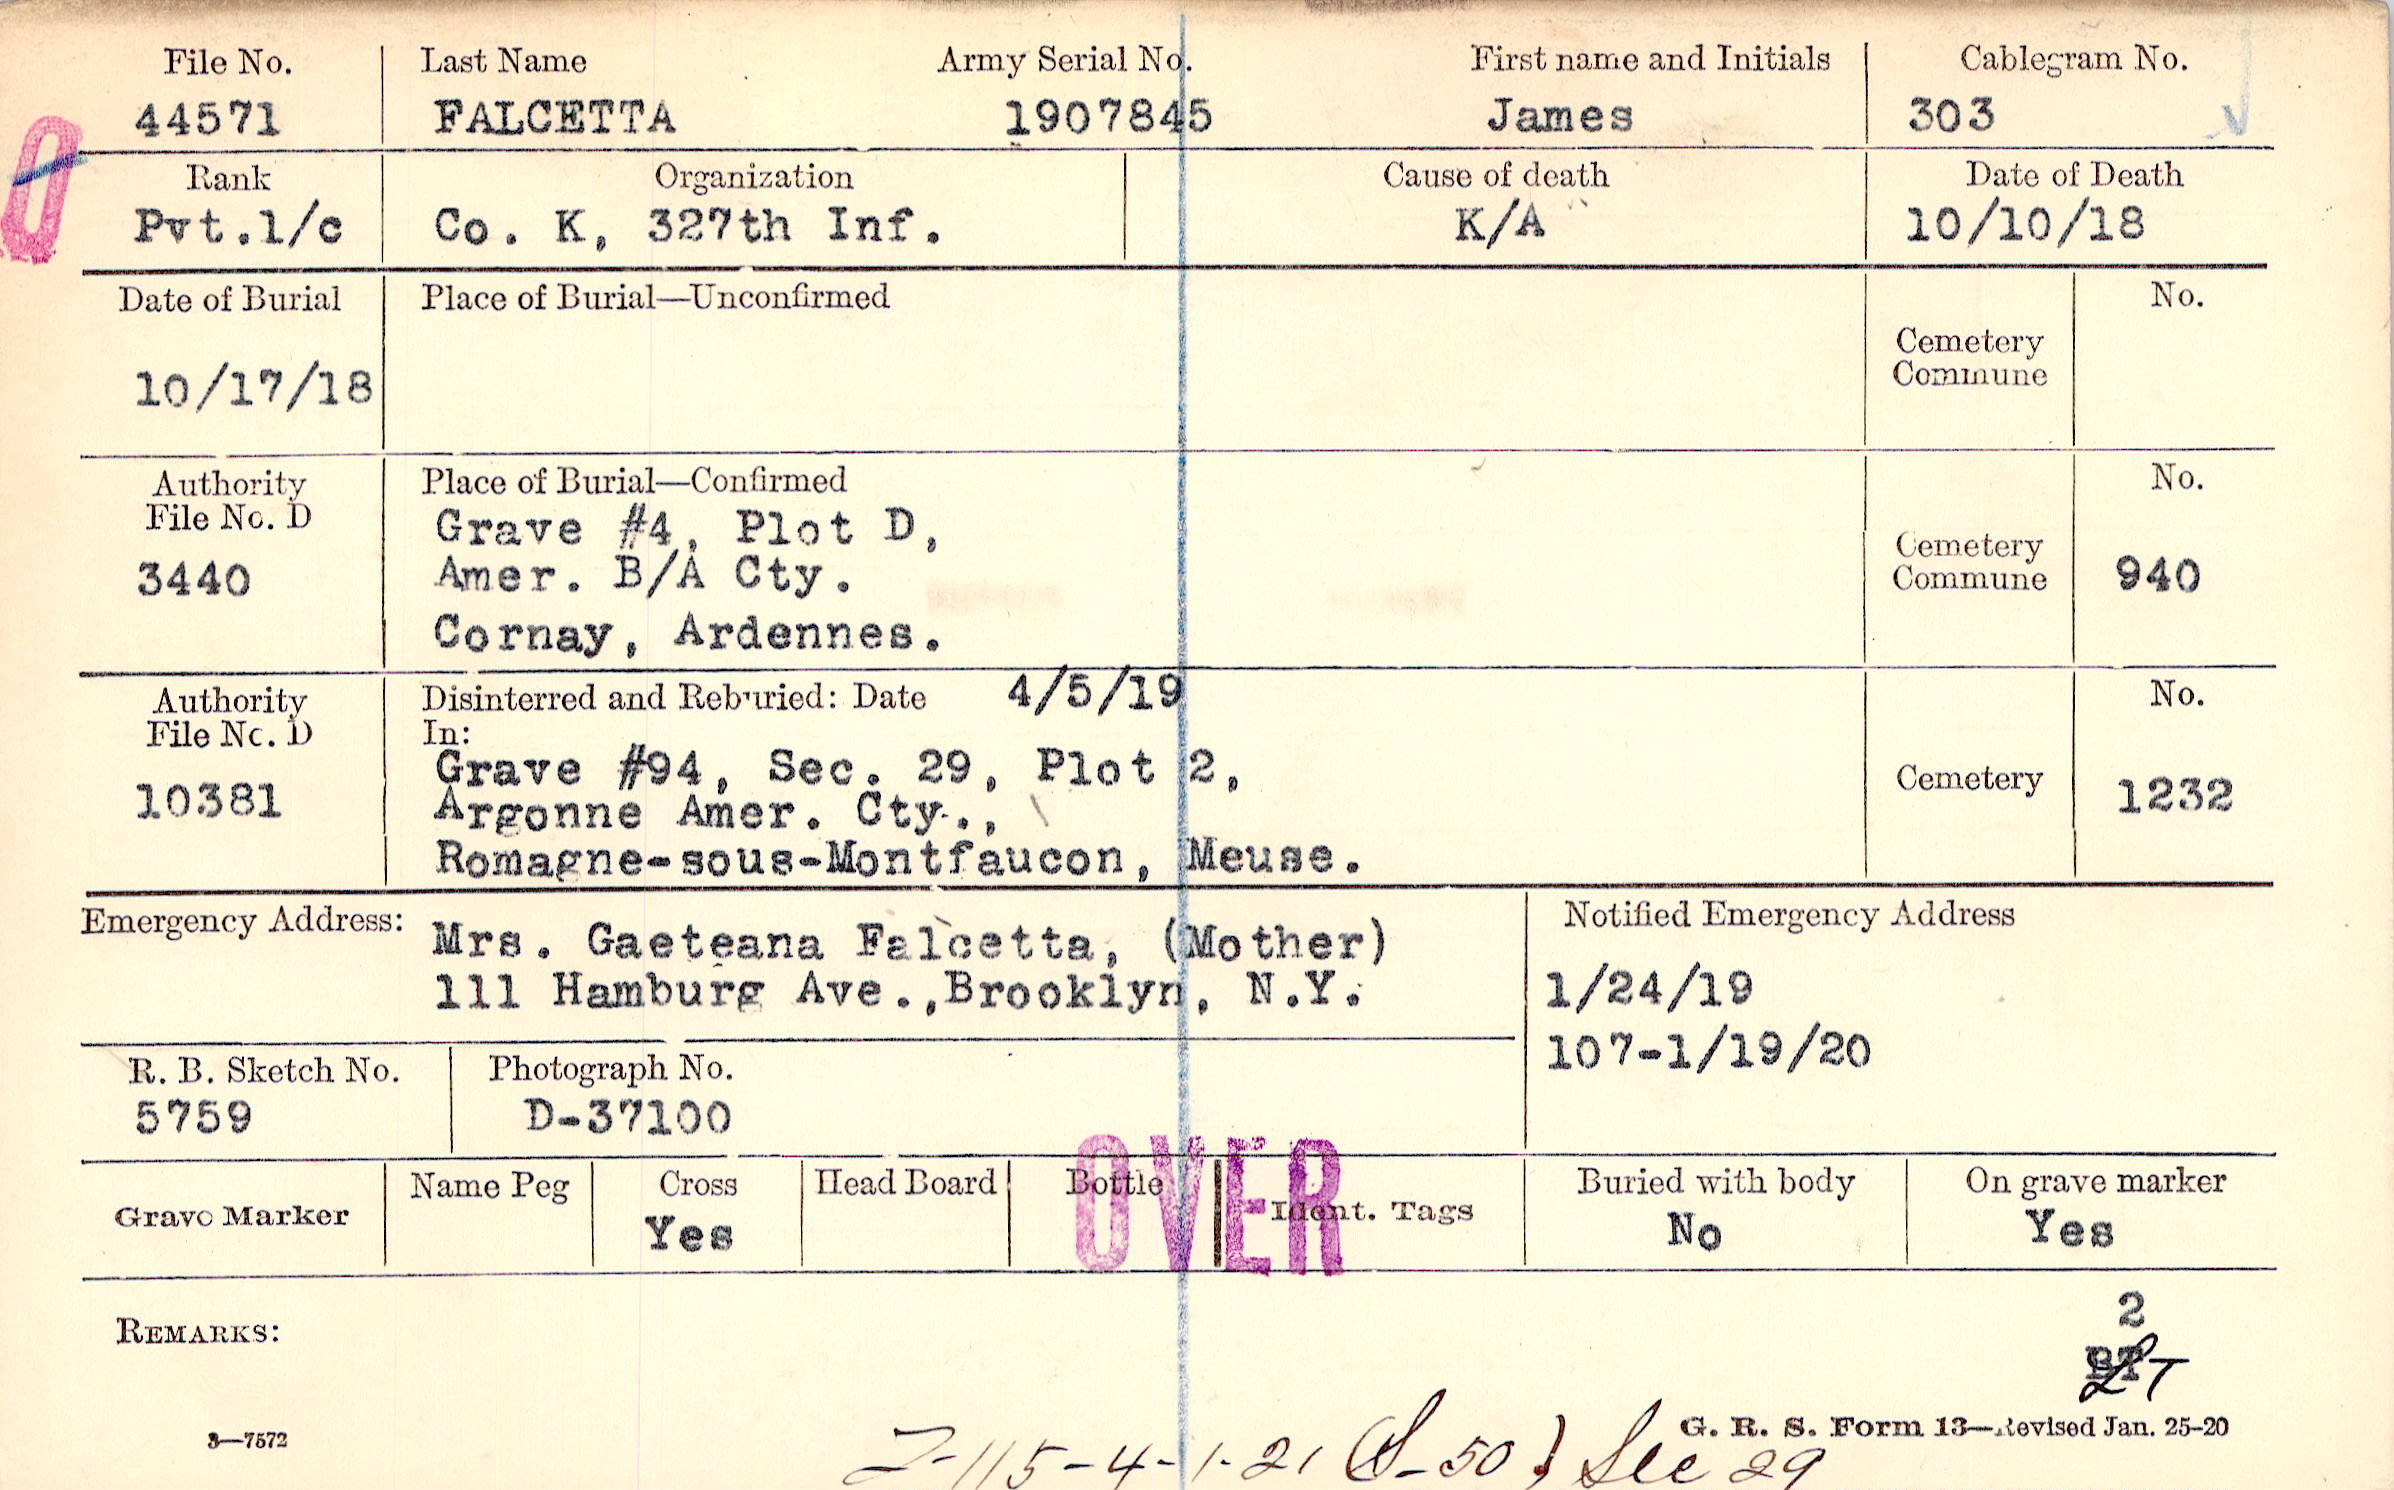 File No. Last Name Army Serial No. First name and Initials Cablegram No.
44571 FALCETTA 1907845 James 303
O
Rank Organization Cause of death Date of Death
Pvt.1/c Co. K, 327th Inf. K/A 10/10/18
Date of Burial Place of Burial—Unconfirmed No.
Cemetery
Commune
10/17/18
Authority Place of Burial—Confirmed No.
File No. D
Grave #4, Plot D,
3440 Amer. B/A Cty. Cemetery Commune 940
Cornay, Ardennes.
Authority Disinterred and Reburied: Date 4/5/19 No.
File No. D In:
Grave #94, Sec. 29, Plot 2,
10381 Argonne Amer. Cty., Cemetery 1232
Romagne-sous-Montfaucon, Meuse.
Emergency Address: Mrs. Gaeteana Falcetta, (Mother) Notified Emergency Address
111 Hamburg Ave.,Brooklyn, N.Y. 1/24/19
107-1/19/20
R. B. Sketch No. Photograph No.
5759 D-37100
OVER
Grave Marker Name Peg Cross Head Board Bottle Ident. Tags Buried with body On grave marker
Yes No Yes
REMARKS: 2
LT
G. R. S. Form 13—Revised Jan. 25-20
3—7572
2-115-4-1-21 (S-50) Sec 29